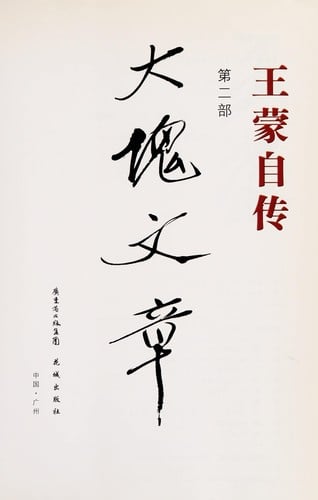 王蒙自传
第二部
大塊文章
廣東省出版集團
花城出版社
中国·广州